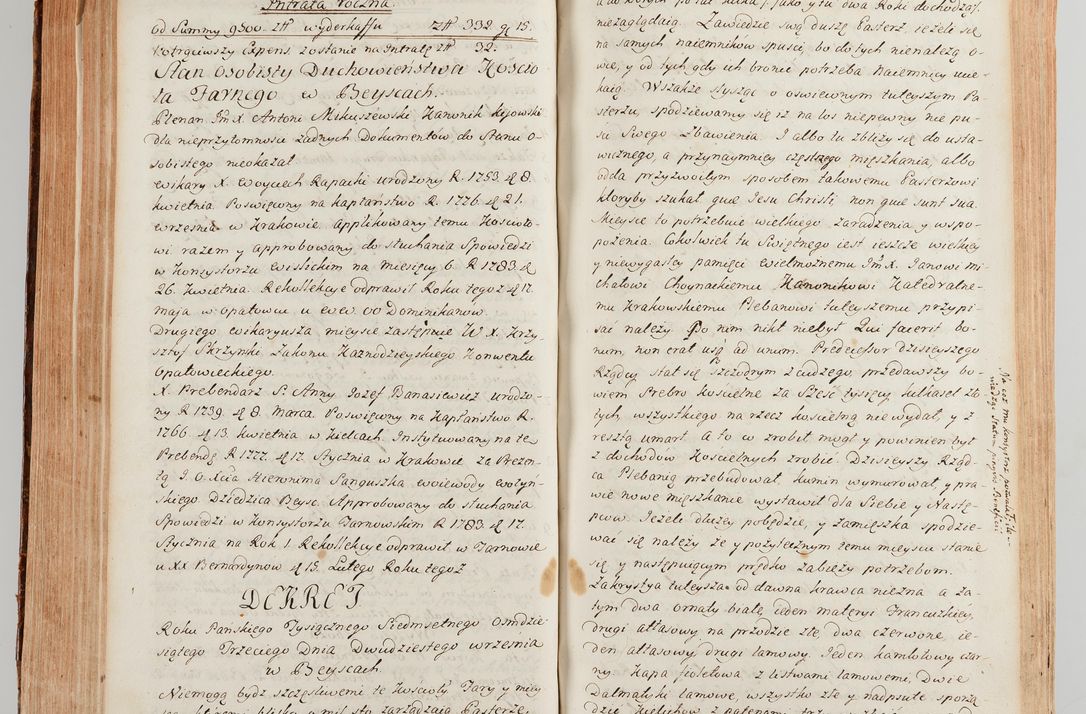 Intrata roczna.
Od Summy 9500. złł wyderkaffu złł 332. g 15.
Potrąciwszy Expens. zostanie na Intratę złł 32.
Stan osobisty Duchowieństwa Koscio
ła Farnego w Beyscach.
Plenan. Jm X. Antoni Mikuszewski Kanonik Kijowski
Dla nieprzytomnosci żadnych Dokumentów do Stanu o-
sobistego nieokazał
Wikary X. Woyciech Rapacki urodzony R. 1753. d 8.
kwietnia. Poswięcony na kapłaństwo R. 1776. d 21.
Wrzesnia w Krakowie applikowany temu Koscioło-
wi razem y approbowany do słuchania Spowiedzi
w Konsystorzu Wislickim na miesięcy 6. R 1783. d
26. Kwietnia. Rekollekcye odprawił Roku tegoż d 17.
maja w Opatowcu u W.W. OO Dominikanow.
Drugiego Wikaryusza mieysce zastępuie W X. Krzy
sztof Skrzynki Zakonu Kaznodzieyskiego Konwentu
Opatowieckiego.
X. Prebendarz S. Anny Jozef Banasiewicz urodzo-
ny R 1739. d 8. Marca. Poswięcony na Kapłaństwo R.
1766. d 13. kwietnia w Kielcach. Instytuowany na te
Prebendę R. 1777. d 17. Stycznia w Krakowie za Prezen-
tą J.O.Xcia Hieronima Sanguszka Woiewody Wołyn-
skiego Dziedzica Beysc. Approbowany do słuchania
Spowiedzi w Konsystorzu Tarnowskim R 1783. d 17.
Stycznia na Rok 1. Rekollekcye odprawił w Tarnowie
u XX Bernardynow d 15. Lutego Roku tegoż
DEKRET
Roku Pańskiego Tysiącznego Siedmsetnego Osmdzie-
siątego Trzeciego Dnia Dwudziestego Wrzesnia
w Beyscach
Niemogą bydz szczęsliwemi te Koscioły Fary y mieys
niezaglądaią. Zawiedzie swą duszę Pasterz, iezeli się
na samych naiemników spusci, bo do tych nienalezą o-
wce, y od tych gdy ich bronic potrzeba Naiemnicy ucie-
kaią. Wszakze słysząc o oswieconym tuteyszym Pa-
sterzu, spodziewamy się iz na los niepewny nie pu-
sci Swego Zbawienia. I albo tu zbliży się do usta-
wicznego, a przynaymniey częstszego mieszkania, albo
odda przyzwoitym sposobem takowemu Pasterzowi
ktoryby szukał quae Jesu Christi, non quae sunt sua.
Mieysce to potrzebuie wielkiego zaradzenia y wspo-
możenia. Cokolwiek tu Swiętnego iest ieszcze wielkiey
y niewygasłey pamięci Wielmoznemu Jm X. Janowi mi-
chałowi Choynackiemu Kanonikowi Katedralne-
mu Krakowskiemu Plebanowi tuteyszemu przypi-
sac nalezy. Po nim nikt niebył Qui facerit bo-
num, non erat usq ad unum. Predecessor dzisieyszego
Rządcy stał się szczodrym z cudzego, przedawszy bo-
wiem Srebro koscielne za Szesc tysięcy kilkaset zło-
tych, wszystkiego na rzecz koscielną niewydał, y z
resztą umarł. A to co zrobił mogł y powinien był
z dochodow Koscielnych zrobic. Dzisieyszy Rząd-
ca Plebanią przebudował, kumin wymurował, y pra
wie nowe mieszkanie wystawił dla Siebie y Nastę-
pcow. Jezeli dłużey pobędzie, y zamieszka spodzie-
wac się nalezy ze y pożytecznym temu mieyscu stanie
się y następuiącym prędko zabieży potrzebom.
Zakrystya tuteysza od dawna krawca niezna a za-
tym dwa ornaty białe, ieden materyi Francuzkiey,
drugi atłasowy na przodzie złe, dwa czerwone, ie-
den atłasowy drugi lamowy. Jeden kamlotowy czar-
ny. Kapa fioletowa z listwami lamowemi, Dwie
Dalmatyki lamowe, wszystko złe y nadpsute sporzą